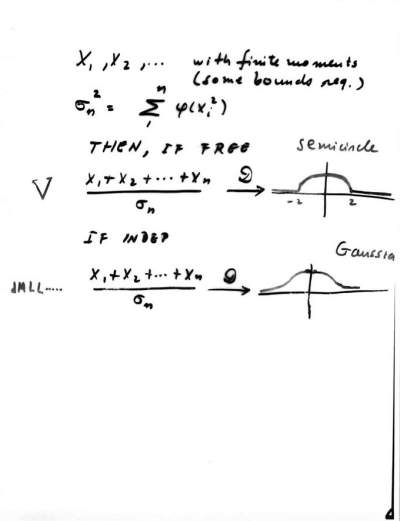 X₁, X₂, ... with finite moments
(some bounds req.)
σₙ² = Σ₁ⁿ φ(Xᵢ²)
THEN, IF FREE semicircle
V (X₁ + X₂ + ... + Xₙ) / σₙ →D
-2 2
IF INDEP
Gaussia
dMLL..... (X₁ + X₂ + ... + Xₙ) / σₙ →D